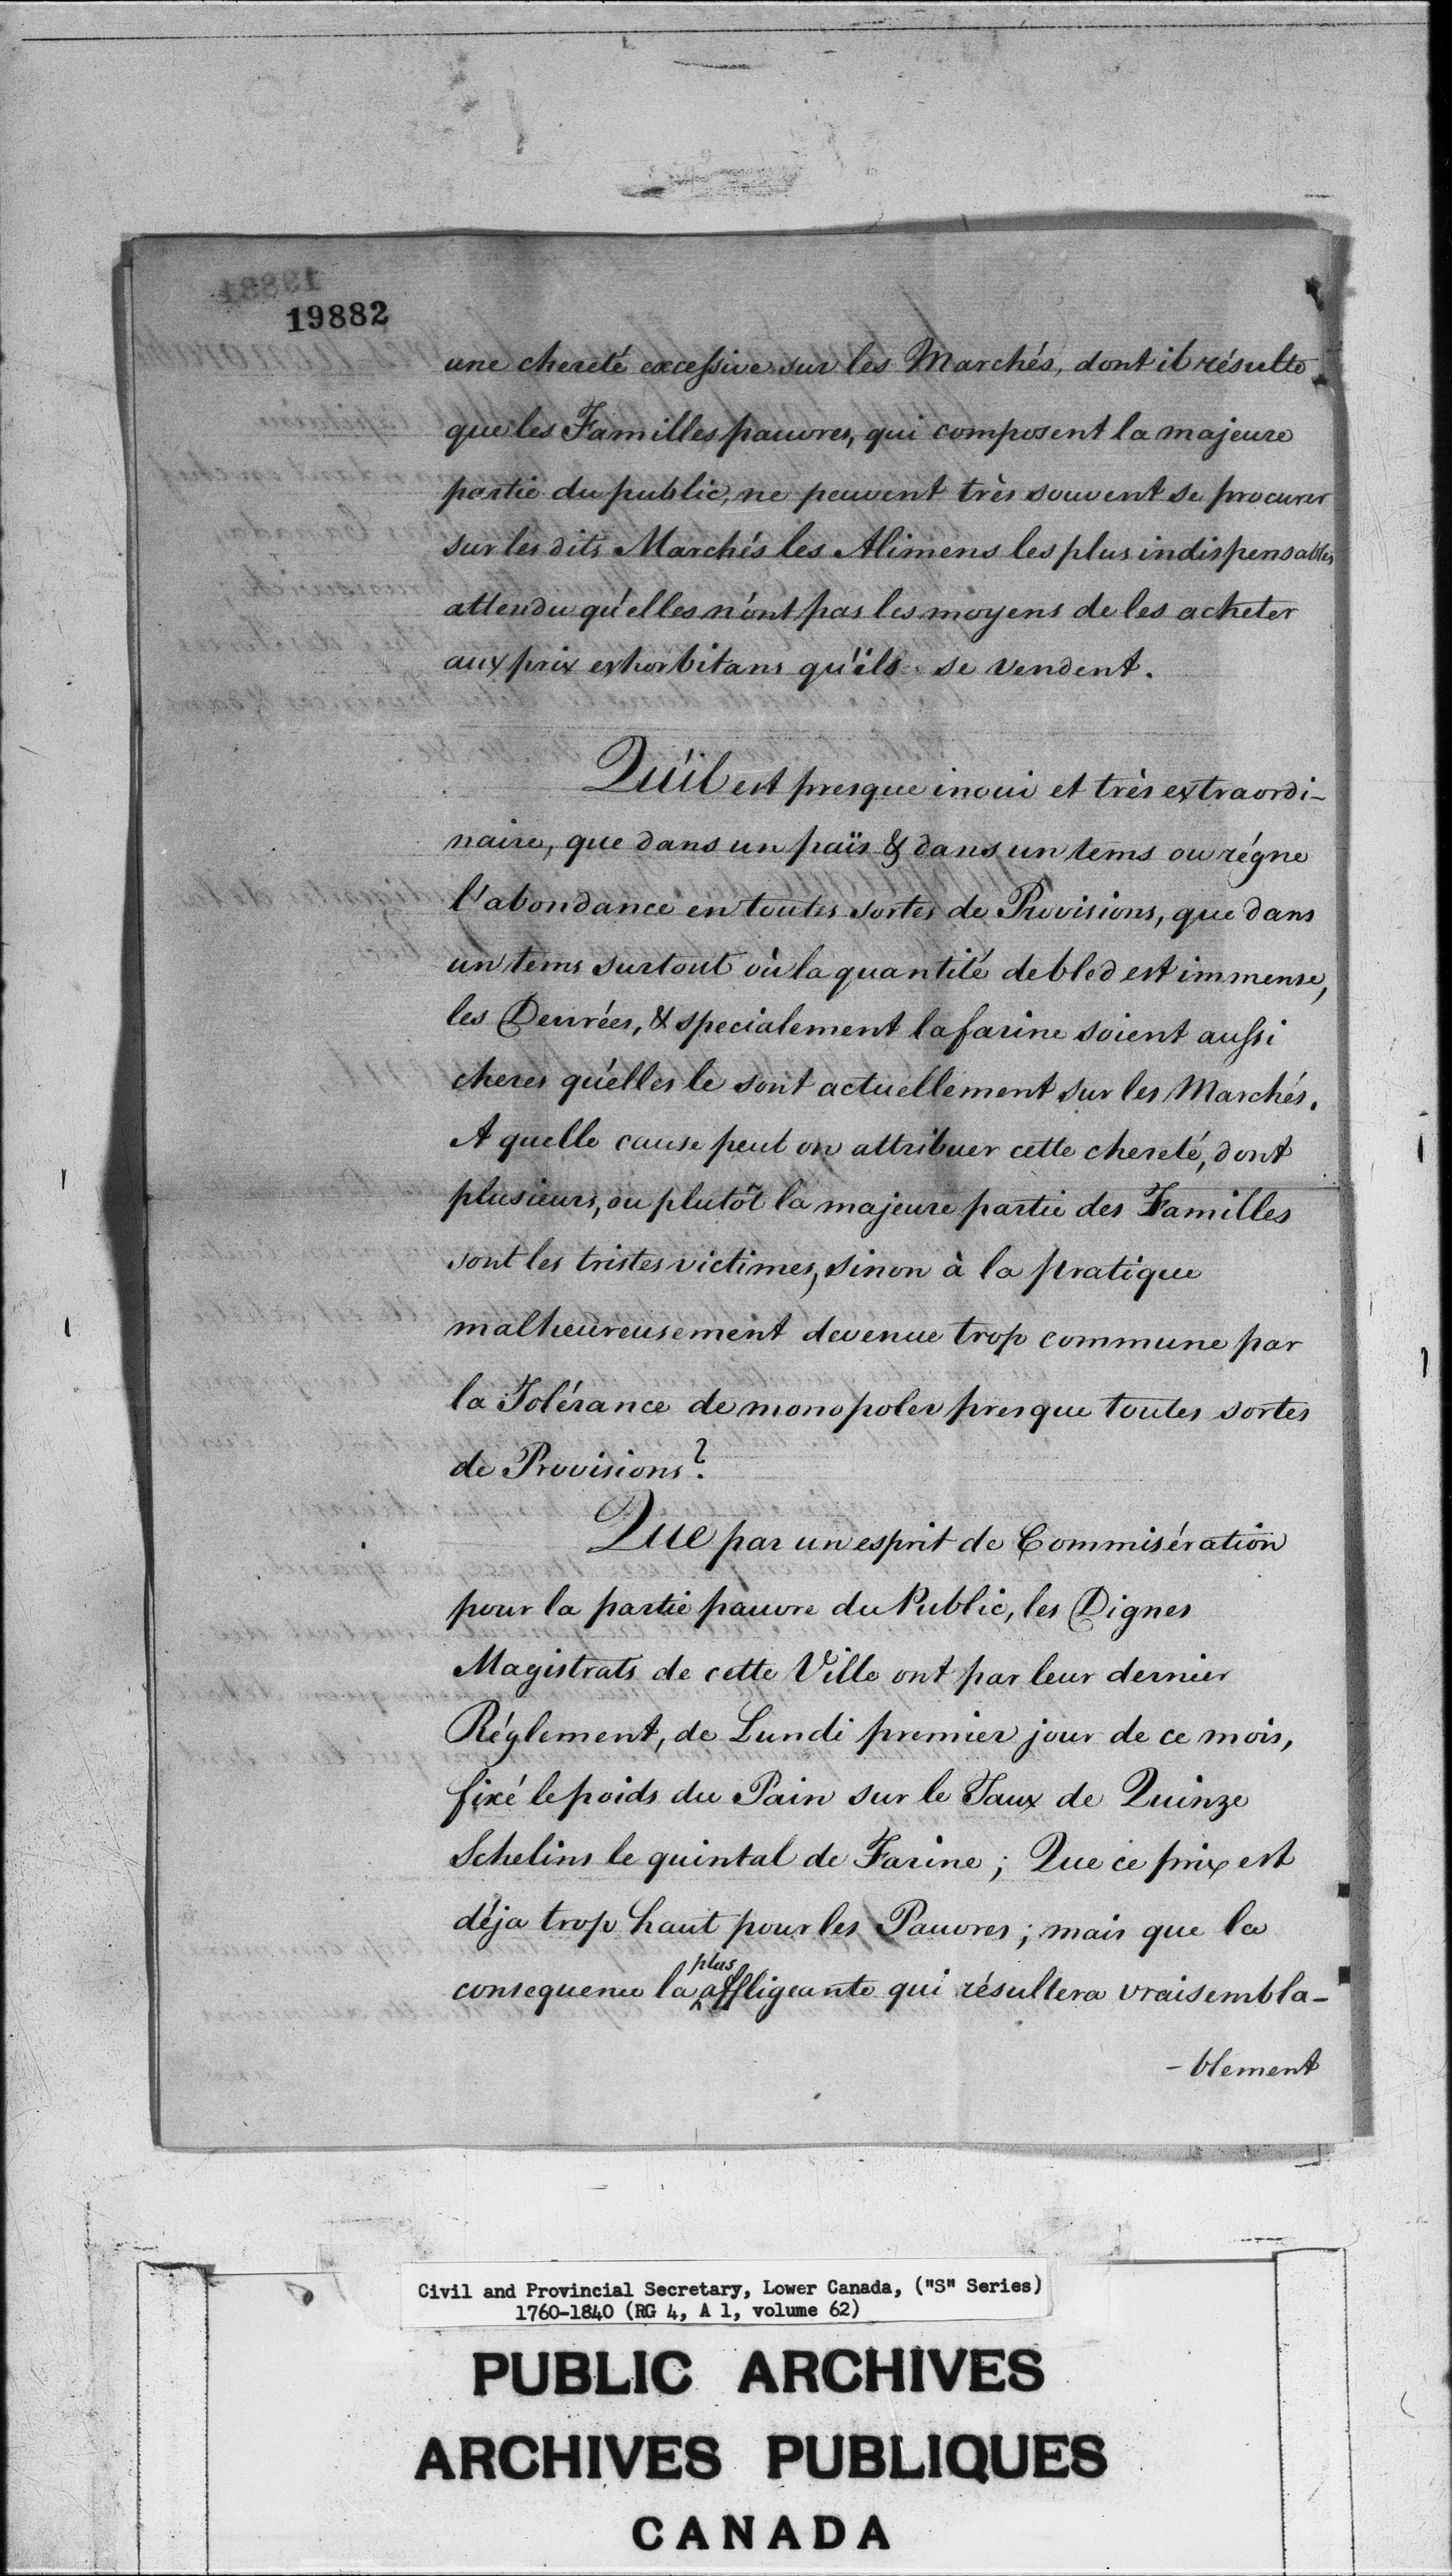 19881
19882
une chereté excessive sur les Marchés, dont il résulte
que les Familles pauvres, qui composent la majeure
partie du public, ne peuvent très souvent se procurer
sur les dits Marchés les Alimens les plus indispensables,
attendu qu'elles n'ont pas les moyens de les acheter
aux prix exhorbitans qu'ils se vendent.
Qu'il est presque inoui et très extraordi-
naire, que dans un païs & dans un tems ou régne
l'abondance en toutes sortes de Provisions, que dans
un tems surtout où la quantité de bled est immense,
les Denrées, & specialement la farine soient aussi
cheres qu'elles le sont actuellement sur les Marchés.
A quelle cause peut on attribuer cette chereté, dont
plusieurs, ou plutôt la majeure partie des Familles
sont les tristes victimes, sinon à la pratique
malheureusement devenue trop commune par
la Tolérance de monopoler presque toutes sortes
de Provisions?
Que par un esprit de Commisération
pour la partie pauvre du Public, les Dignes
Magistrats de cette Ville ont par leur dernier
Réglement, de Lundi premier jour de ce mois,
fixé le poids du Pain sur le Taux de Quinze
Schelins le quintal de Farine; Que ce prix est
déja trop haut pour les Pauvres; mais que la
consequence la plus affligeante qui résultera vraisembla-
-blement
Civil and Provincial Secretary, Lower Canada, ("S" Series)
1760-1840 (RG 4, A 1, volume 62)
PUBLIC ARCHIVES
ARCHIVES PUBLIQUES
CANADA